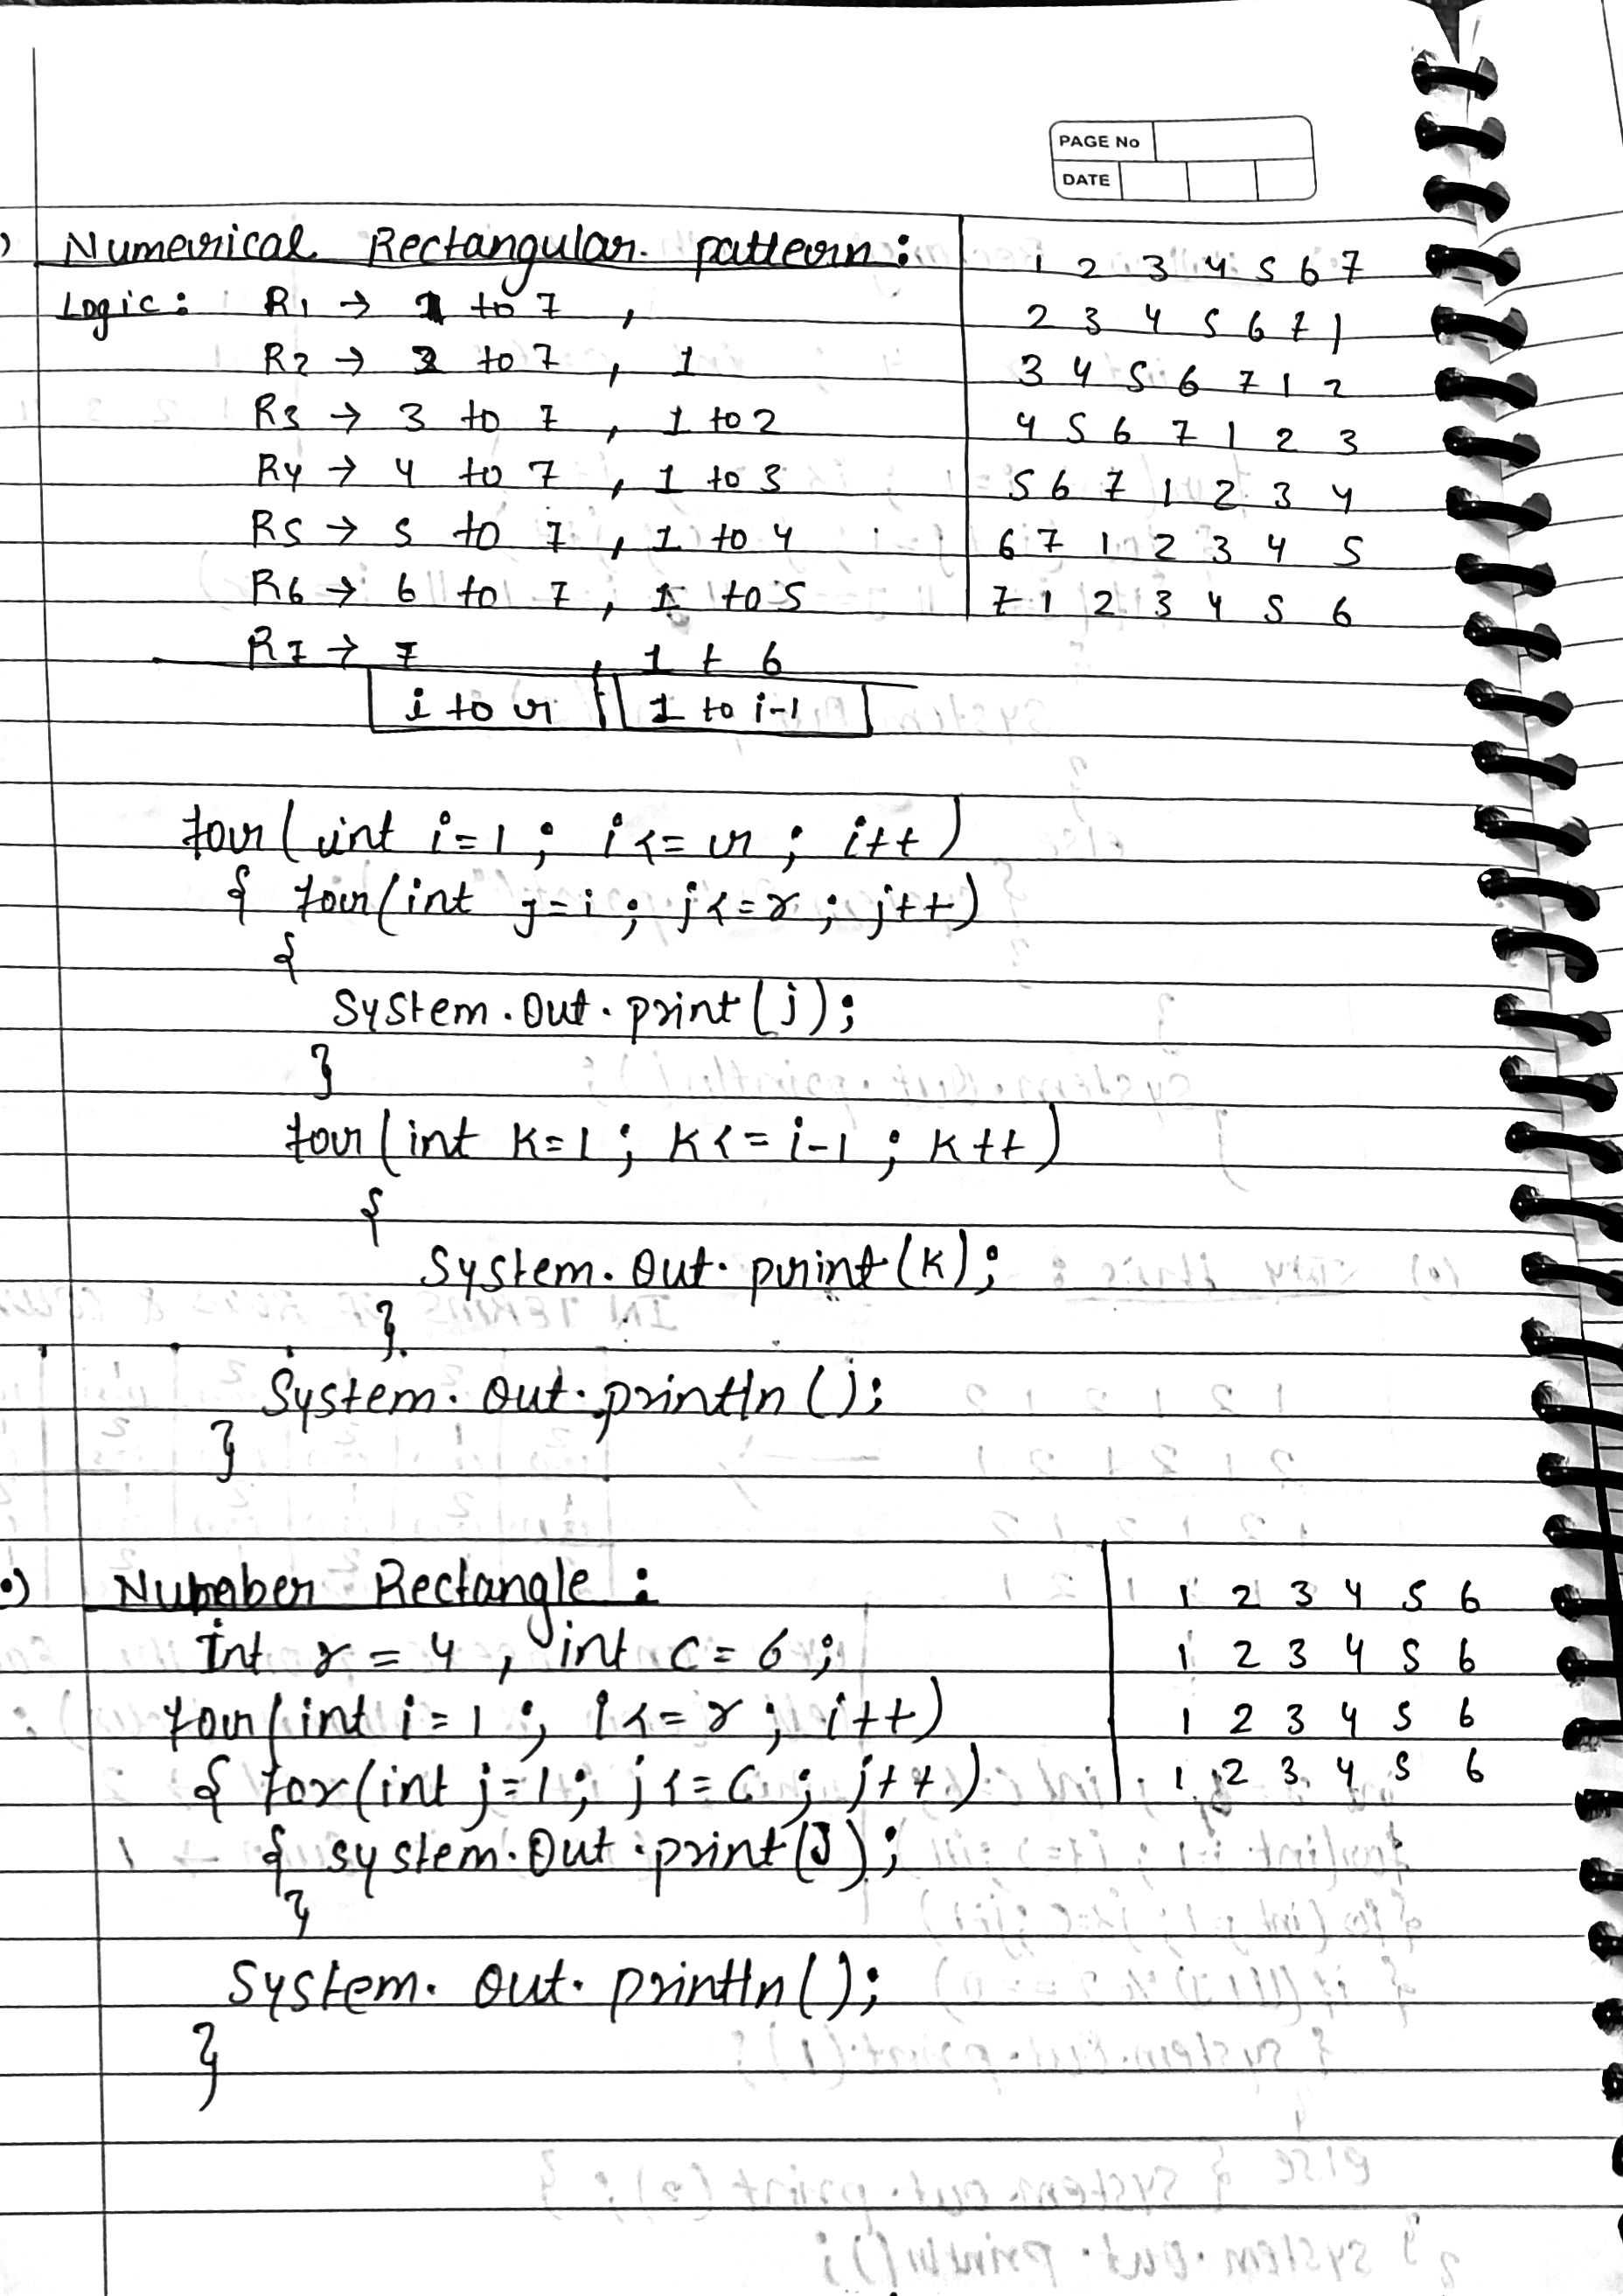 PAGE No
DATE
Numerical Rectangular pattern :
Logic : R1 → 1 to 7 ,
R2 → 2 to 7 , 1
R3 → 3 to 7 , 1 to 2
R4 → 4 to 7 , 1 to 3
R5 → 5 to 7 , 1 to 4
R6 → 6 to 7 , 1 to 5
R7 → 7 , 1 t 6
i to r 1 to i-1
1 2 3 4 5 6 7
2 3 4 5 6 7 1
3 4 5 6 7 1 2
4 5 6 7 1 2 3
5 6 7 1 2 3 4
6 7 1 2 3 4 5
7 1 2 3 4 5 6
for( int i=1 ; i<= r ; i++ )
{ for(int j=i ; j<=r ; j++)
{
System.out.print(j);
}
for(int k=1 ; k<= i-1 ; k++)
{
System.out.print(k);
}
System.out.println();
}
•) Number Rectangle :
Int r = 4 , int c = 6 ;
for(int i=1 ; i<=r ; i++)
{ for(int j=1; j<=c ; j++)
{ system.out.print(J);
}
System.out.println();
}
1 2 3 4 5 6
1 2 3 4 5 6
1 2 3 4 5 6
1 2 3 4 5 6